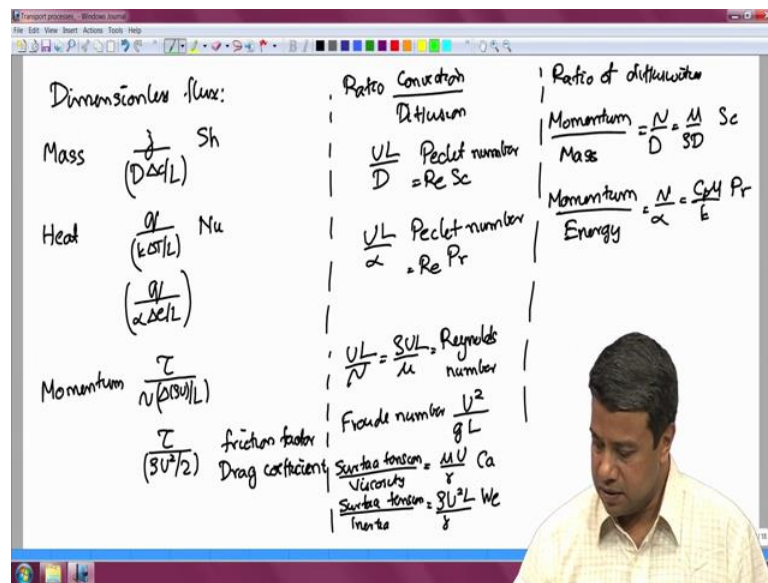 Transport processes_ - Windows Journal
File Edit View Insert Actions Tools Help
Dimensionless flux:
Mass j/(DΔc/L) Sh
Heat q/(kΔT/L) Nu
(q/(αΔe/L))
Momentum τ/(ν(Δ(ρU)/L)
τ/(ρU²/2) friction factor
Drag coefficient
Ratio Convection/Diffusion
UL/D Peclet number
= Re Sc
UL/α Peclet number
= Re Pr
UL/ν = ρUL/μ = Reynolds
number
Froude number U²/gL
Surface tension/Viscosity = μU/γ Ca
Surface tension/Inertia = ρU²L/γ We
Ratio of diffusivities
Momentum/Mass = ν/D = μ/ρD Sc
Momentum/Energy = ν/α = Cpμ/k Pr